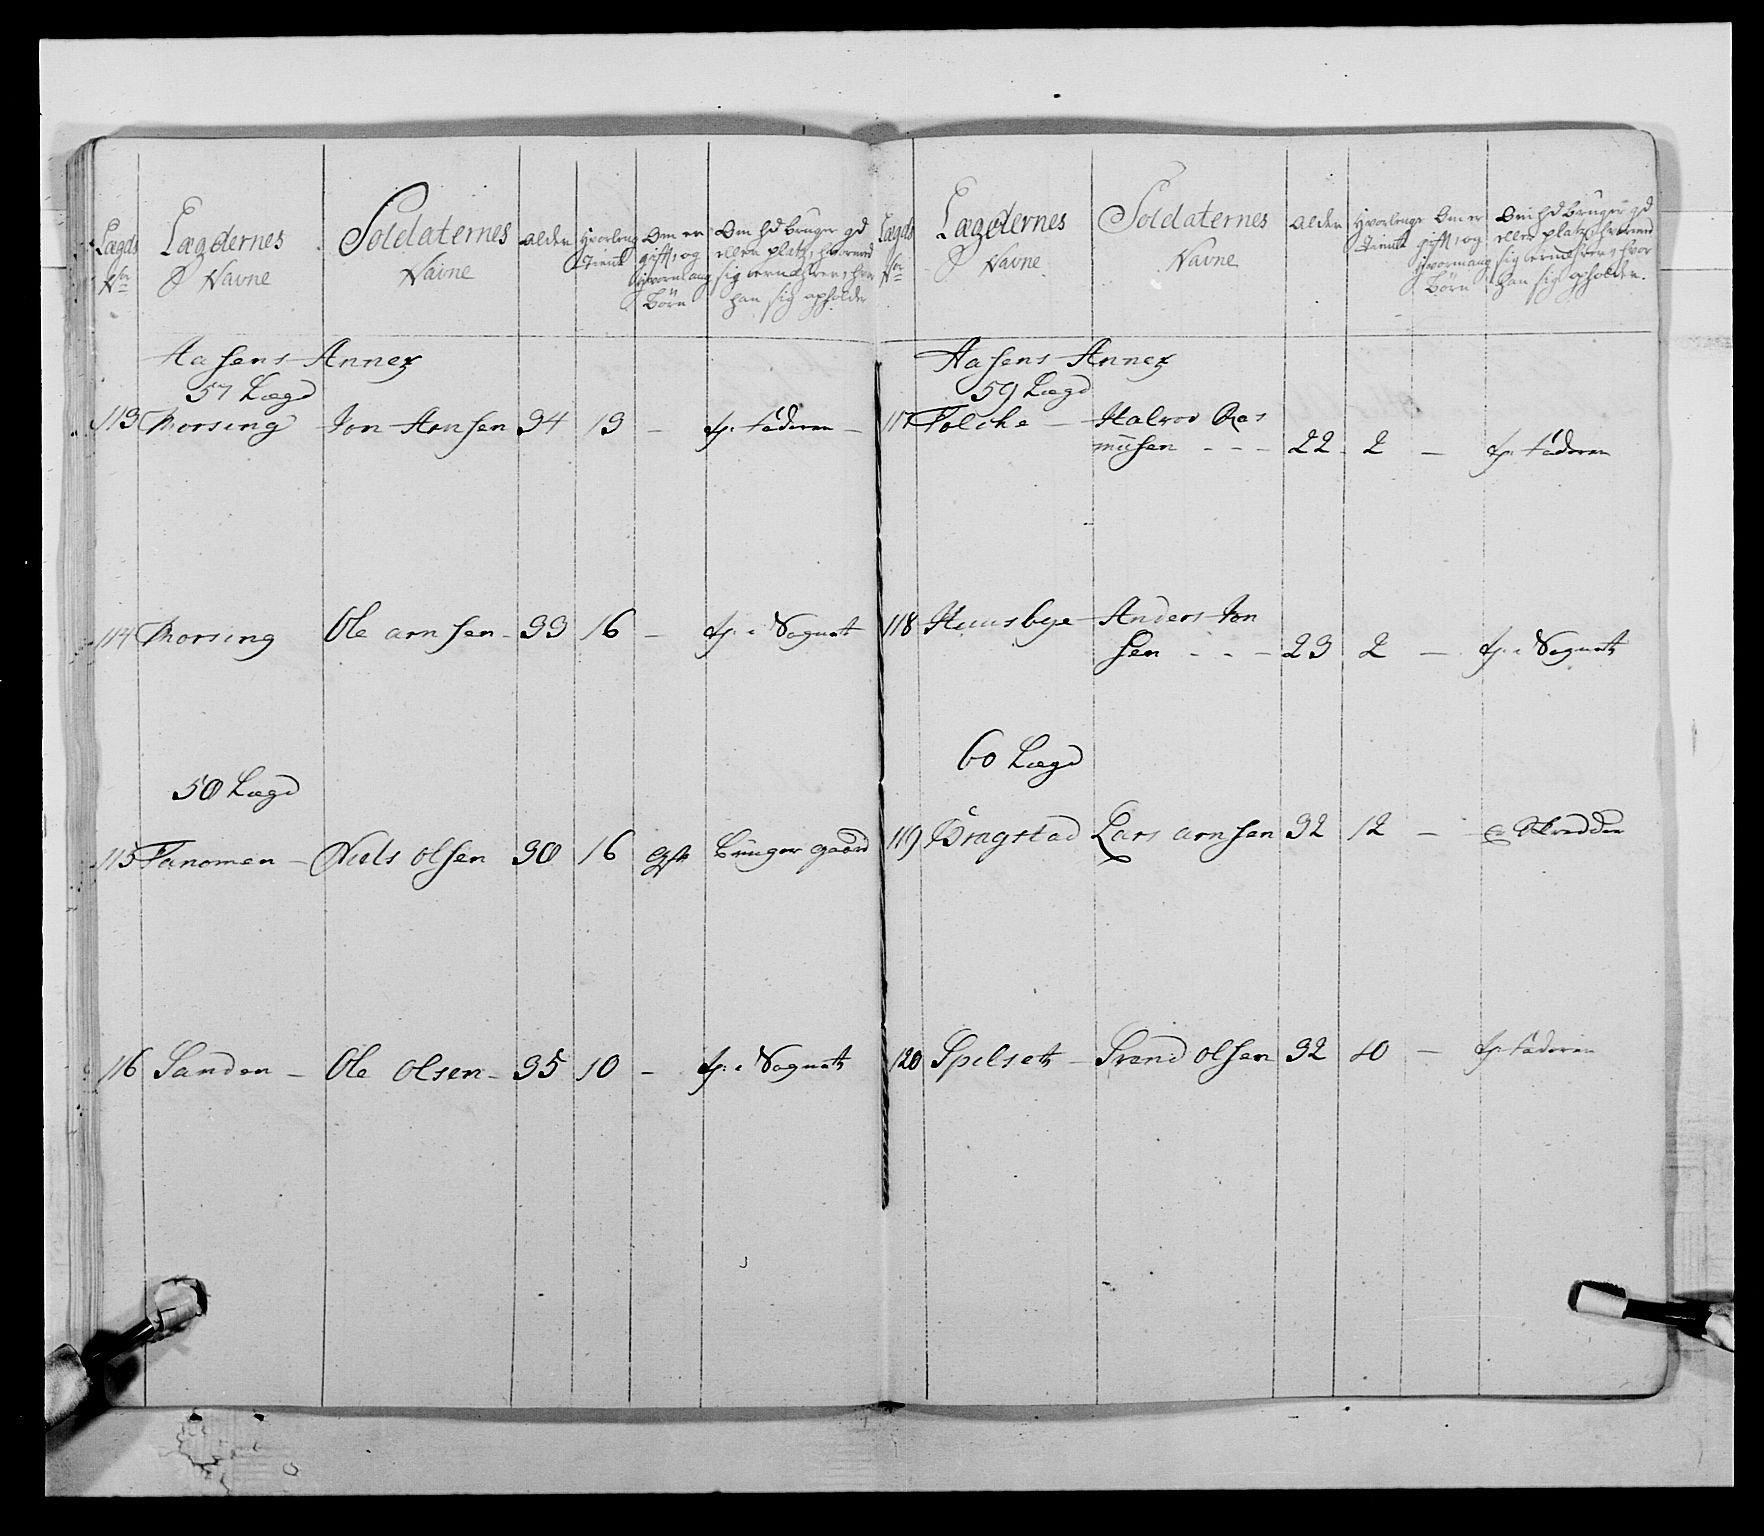 Lægds Nr
Lægdernes Navne
Soldaternes Navne
Alder
Hvorlenge tient
Om er gift, og hvormang Børn
Om hd bruger gd eller platz, hvormed sig ernærer, hvor han sig opholder
Aasens Annex
57 Lægd
113 Morsing Jon Arnsen 34 13 – hos faderen –
114 Morsing Ole arnsen – 33 16 – i Sognet
58 Lægd
115 Fanomen – Niels olsen 30 16 gift bruger gaard
116 Sanden – Ole olsen – 35 10 – i Sognet
Lægds Nr
Lægdernes Navne
Soldaternes Navne
Alder
Hvorlenge tient
Om er gift, og hvormang Børn
Om hd bruger gd eller platz, hvormed sig ernærer, hvor han sig opholder.
Aasens Annex
59 Lægd
117 Folche – Halvor Ras
musen - - - 22 2 – faderen
118 Huusbye Anders Jon
sen - - - 23 2 – i Sognet
60 Lægd
119 Bragstad Lars arnsen 32 12 – er Skredder
120 Spilset – Trend olsen 32 10 – faderen